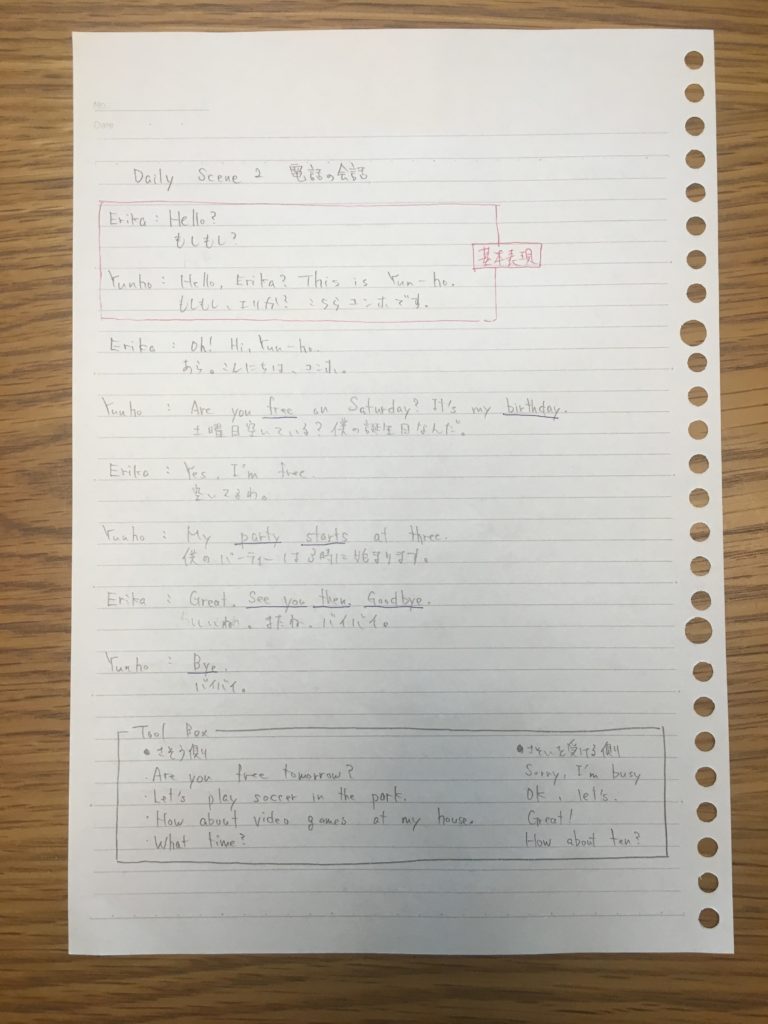 No.
Date
Daily Scene 2 電話の会話
Erika : Hello?
もしもし?
基本表現
Yunho : Hello, Erika? This is Yun-ho.
もしもし、エリカ? こちらユンホです。
Erika : Oh! Hi, Yun-ho.
あら。こんにちは、ユンホ。
Yunho : Are you free on Saturday? It's my birthday.
土曜日空いている? 僕の誕生日なんだ。
Erika : Yes, I'm free.
空いてるわ。
Yunho : My party starts at three.
僕のパーティーは3時に始まります。
Erika : Great. See you then. Goodbye.
いいわね。またね。バイバイ。
Yunho : Bye.
バイバイ。
Tool Box
●さそう側 ●さそいを受ける側
・Are you free tomorrow? Sorry, I'm busy
・Let's play soccer in the park. OK, let's.
・How about video games at my house. Great!
・What time? How about ten?